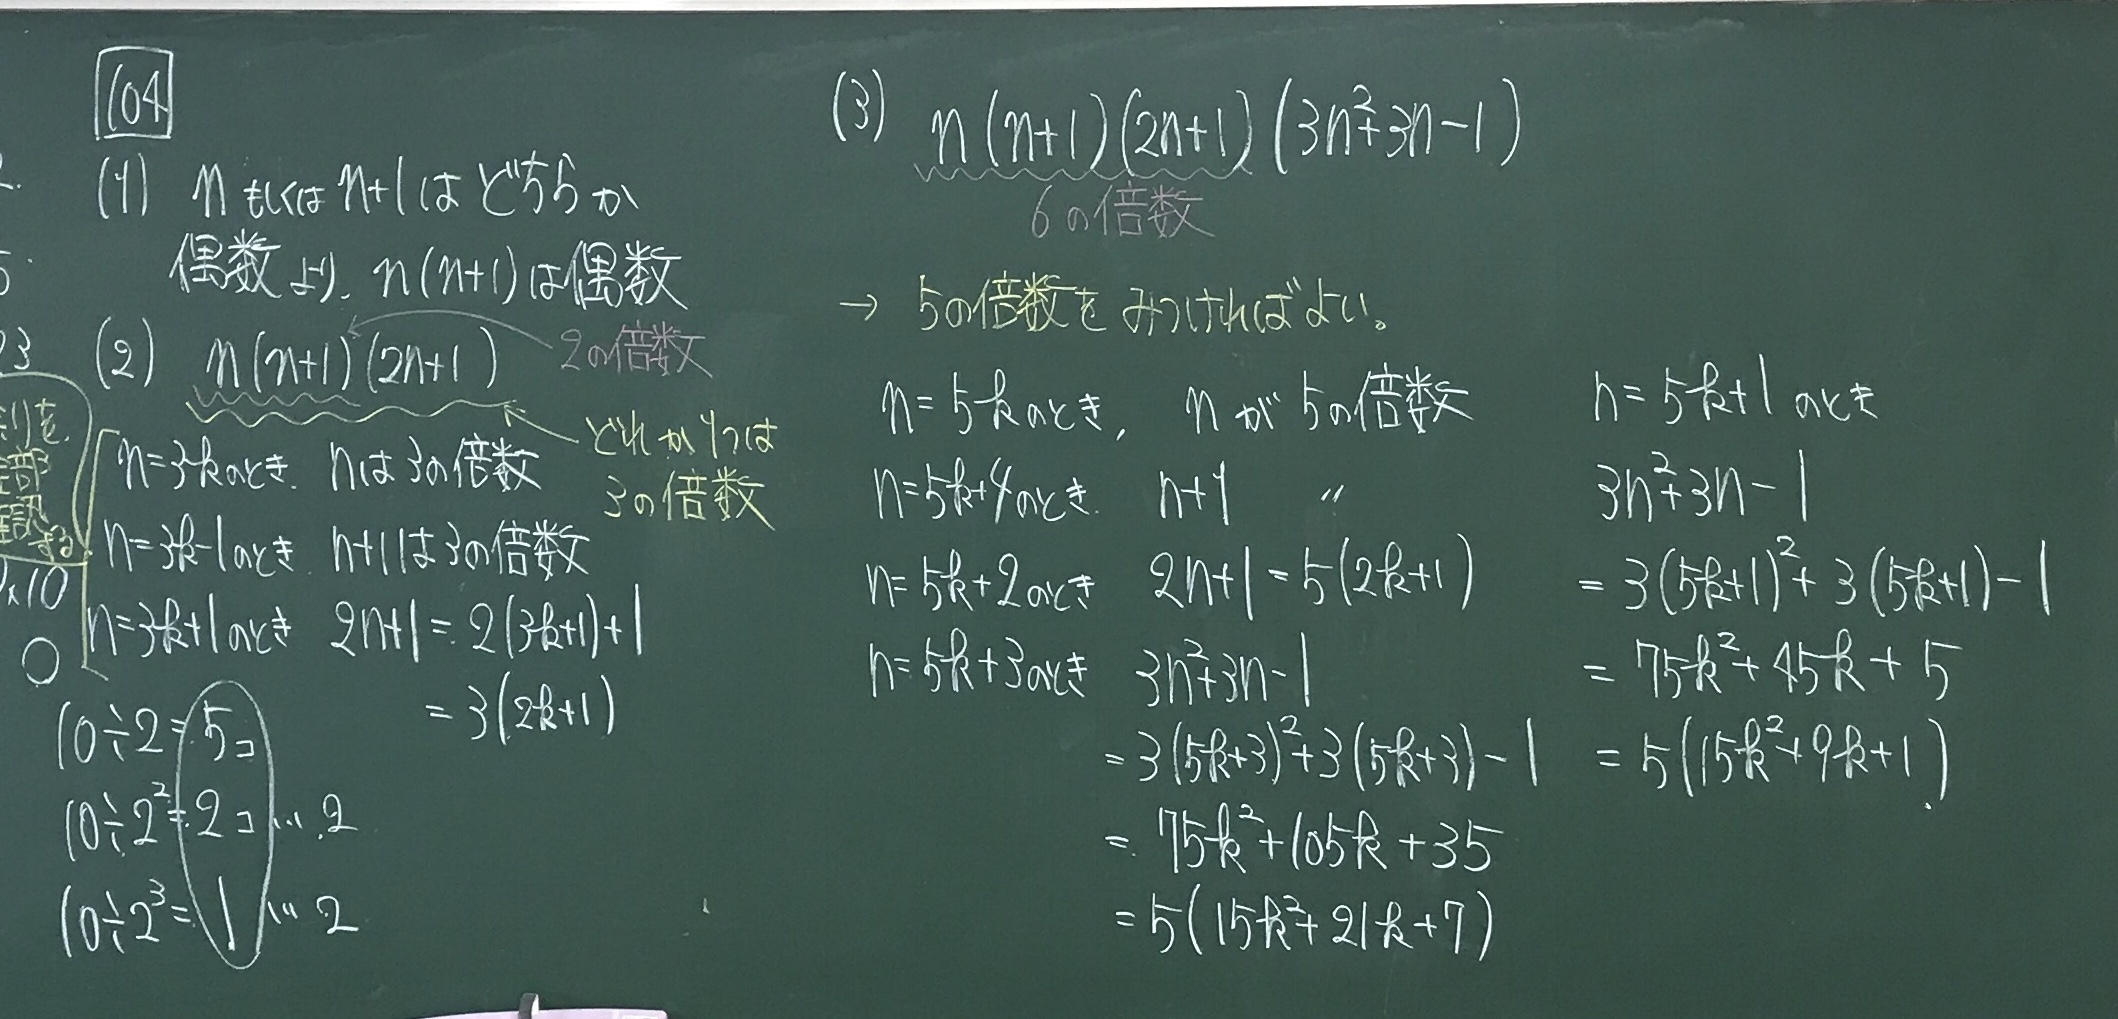 104
(1) nもしくはn+1はどちらか
偶数より、n(n+1)は偶数
(2) n(n+1)(2n+1)
2の倍数
どれか1つは
3の倍数
n=3kのとき. nは3の倍数
n=3k-1のとき. n+1は3の倍数
n=3k+1のとき 2n+1=2(3k+1)+1
=3(2k+1)
10÷2=5コ
10÷2²=2コ…2
10÷2³=1…2
(3) n(n+1)(2n+1)(3n²+3n-1)
6の倍数
→ 5の倍数をみつければよい。
n=5kのとき, nが5の倍数
n=5k+4のとき. n+1 〃
n=5k+2のとき 2n+1=5(2k+1)
n=5k+3のとき 3n²+3n-1
=3(5k+3)²+3(5k+3)-1
=75k²+105k+35
=5(15k²+21k+7)
n=5k+1のとき
3n²+3n-1
=3(5k+1)²+3(5k+1)-1
=75k²+45k+5
=5(15k²+9k+1)